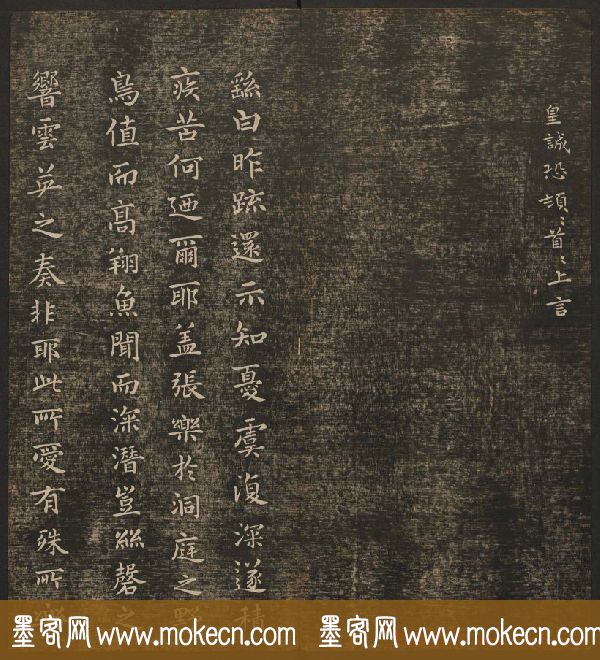 皇誠恐頓〻首〻上言
繇白昨疏還示知憂虞復深遂積
疾苦何迺爾耶蓋張樂於洞庭之
鳥值而高翔魚聞而深潛豈絲磬之
響雲英之奏非耶此所愛有殊所
墨客网 www.mokecn.com 墨客网 www.mokecn.com